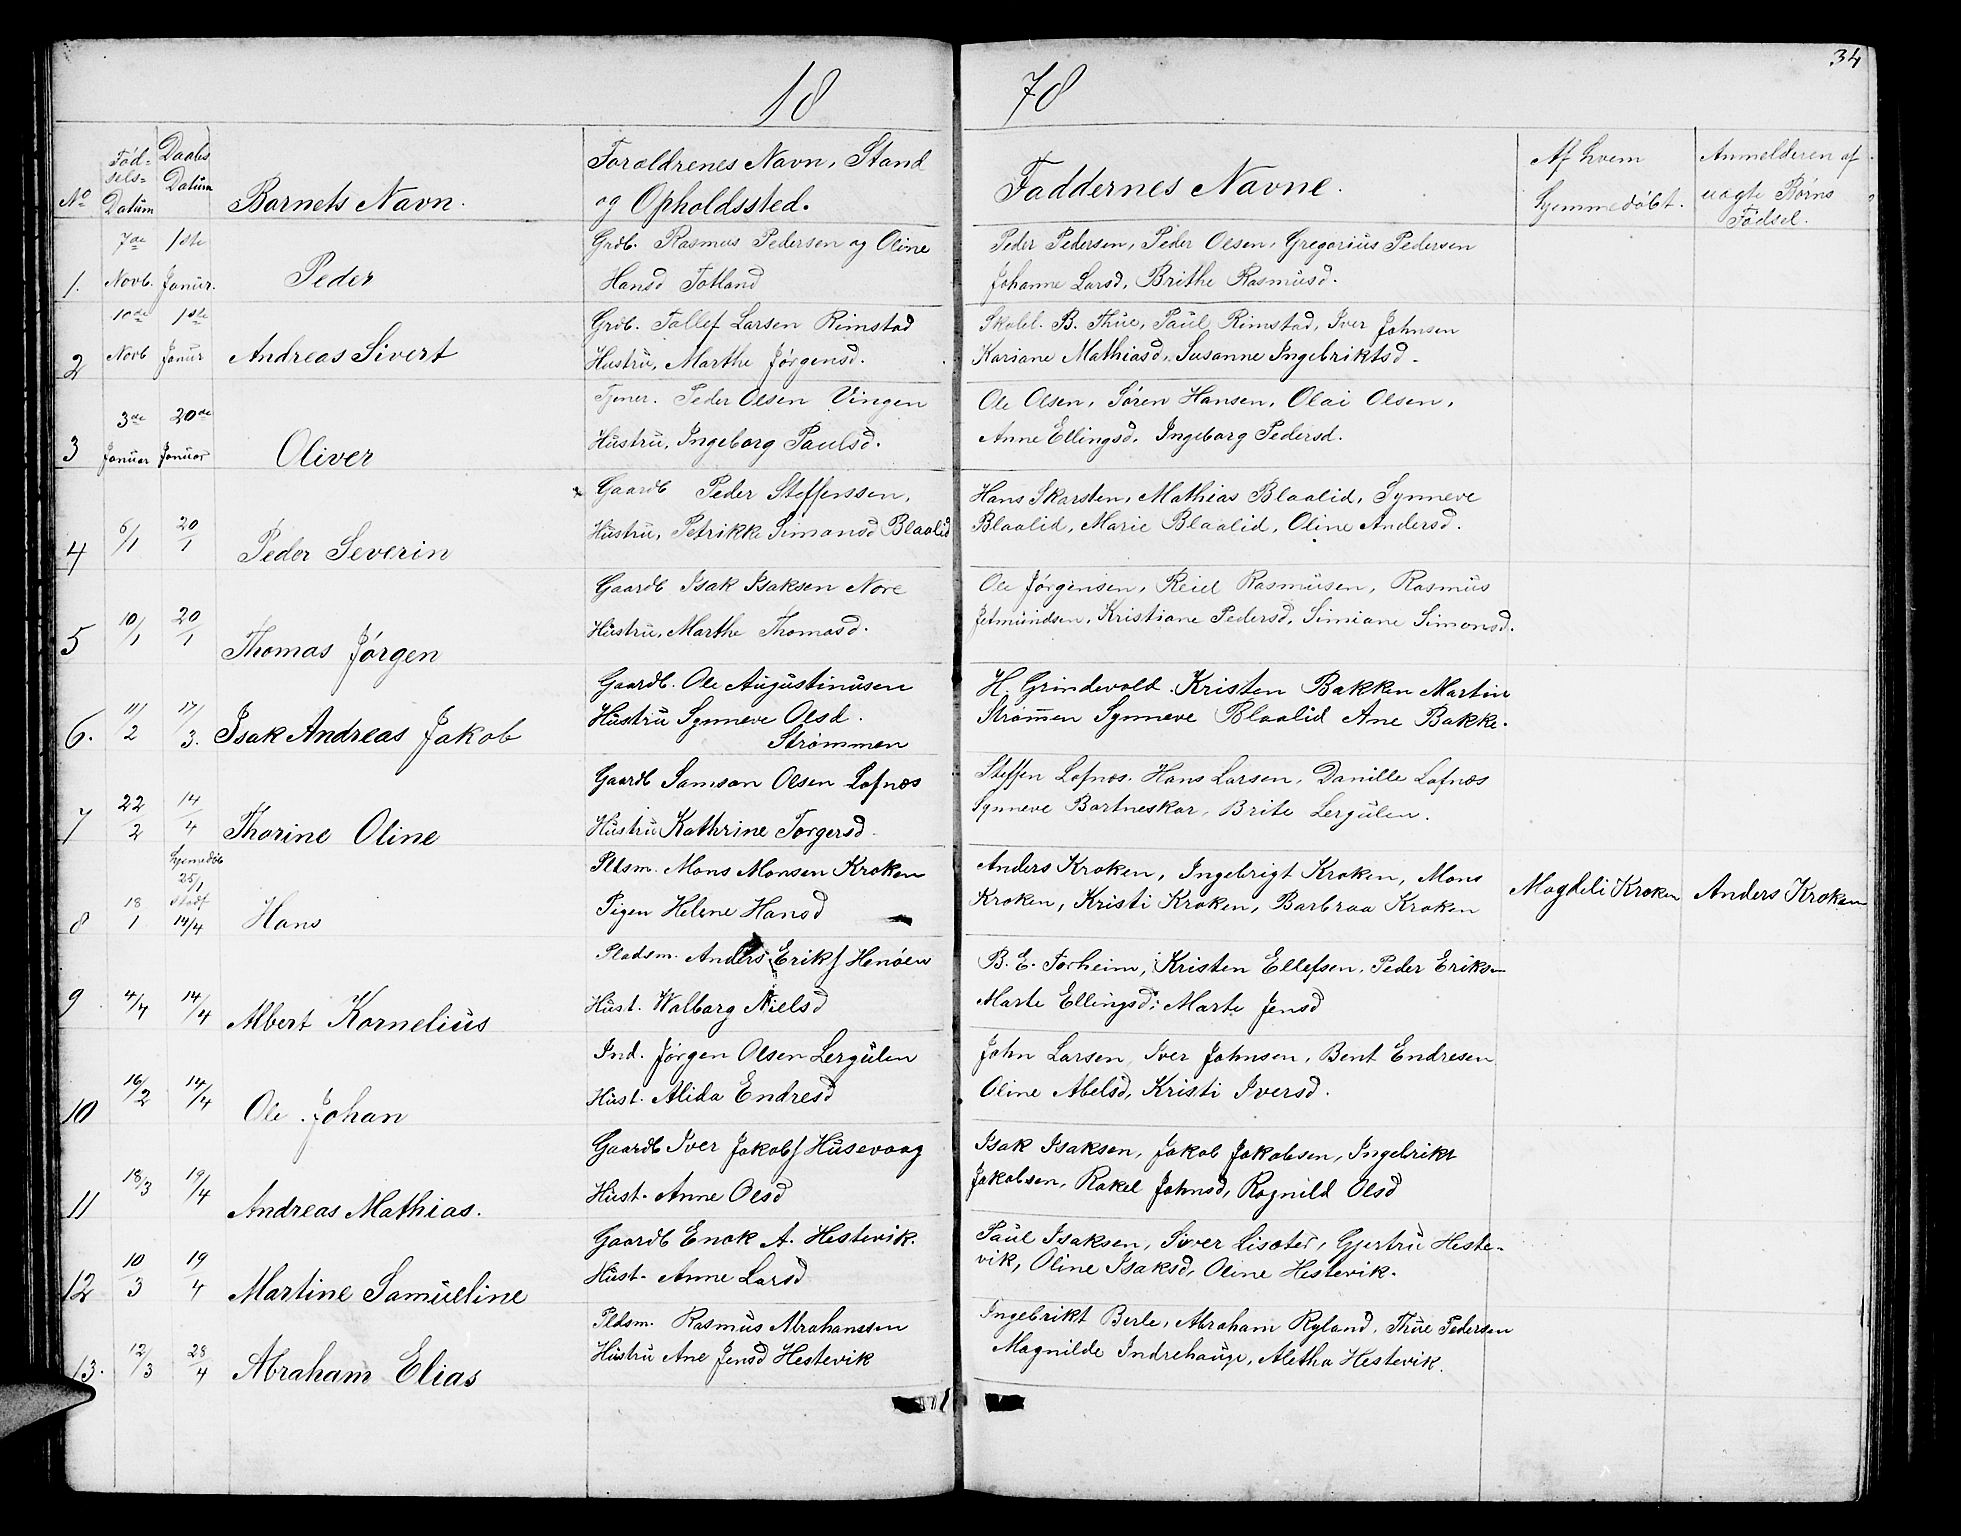 34
18 78
No
Fød-
sels-
Datum
Daabs
Datum
Barnets Navn.
Foraldrenes Navn, Stand
og Opholdssted.
Faddernes Navne.
Af hvem
hjemmedøbt.
Anmelderen af
uægte Børns
Fødsel.
7de 1ste Grdb. Rasmus Pedersen og Oline Peder Pedersen, Peder Olsen, Gregorius Pedersen
1. Novb. Janur. Peder Hansd Totland Johanne Larsd, Brithe Rasmusd.
10de 1ste Grdb. Tollef Larsen Rimstad Skoll. B. Thue, Paul Rimstad, Iver Johnsen
2 Novb Janur Andreas Sivert Hustru, Marthe Jørgensd. Kariane Mathiasd, Susanne Ingebriktsd.
3de 20de Tjener. Peder Olsen Vingen Ole Olsen, Søren Hansen, Olai Olsen,
3 Januar Januar Oliver Hustru, Ingeborg Paulsd. Anne Ellingsd, Ingeborg Pedersd.
Gaardb Peder Steffenssen, Hans Skarsten, Mathias Blaalid, Synneve
4 6/1 20/1 Peder Severin Hustru, Petrikke Simonsd Blaalid Blaalid, Marie Blaalid, Oline Andersd.
Gaardb Isak Isaksen Nore Ole Jørgensen, Reiel Rasmusen, Rasmus
5 10/1 20/1 Thomas Jørgen Hustru, Marthe Thomasd. Jetmundsen, Kristiane Pedersd, Simiane Simonsd.
Gaardb. Ole Augustinusen H. Grindevold. Kristen Bakken Martin
6. 11/2 17/3. Isak Andreas Jakob Hustru Synneve Olsd. Strømmen Synneve Blaalid Ane Bakke.
Strømmen
Gaardb Samson Olsen Lofnæs Steffen Lofnæs. Hans Larsen, Danille Lofnæs
7 22/2 14/4 Thorine Oline Hustru Kathrine Torgersd. Synneve Bortneskar, Brite Lergulen.
Hjemmedøb
25/1 Pldsm. Mons Monsen Kroken Anders Kroken, Ingebrigt Kroken, Mons
Stadf
8 18/1 14/4 Hans Pigen Helene Hansd Kroken, Kristi Kroken, Barbraa Kroken Magdeli Kroken Anders Kroken
Pladsm. Anders Eriks Henøen B. E. Forheim, Kristen Ellefsen, Peder Eriksen
9 4/4 14/4 Albert Kornelius Hust. Walborg Nielsd Marte Ellingsd; Marte Jensd
Ind. Jørgen Olsen Lergulen John Larsen Iver Johnsen, Bent Endresen
10 16/2 14/4 Ole Johan Hust. Alida Endresd Oline Abelsd, Kristi Iversd.
Gaardb Iver Jakobs Husevaag Isak Isaksen, Jakob Jakobsen, Ingebrikt
11 18/3 19/4 Andreas Mathias. Hust. Anne Olsd Jakobsen, Rakel Johnsd, Ragnild Olsd
Gaardb Enok A. Hestevik. Paul Isaksen, Siver Lisæter, Gjertru Heste-
12 10/3 19/4 Martine Samueline Hust. Anne Larsd vik, Oline Isaksd, Oline Hestevik.
Pldsm. Rasmus Abrahanssen Ingebrikt Berle, Abraham Ryland, Thue Pedersen
13. 12/3 28/4 Abraham Elias Hustru Ane Jensd Hestevik Magnilde Indrehauge, Aletha Hestevik.